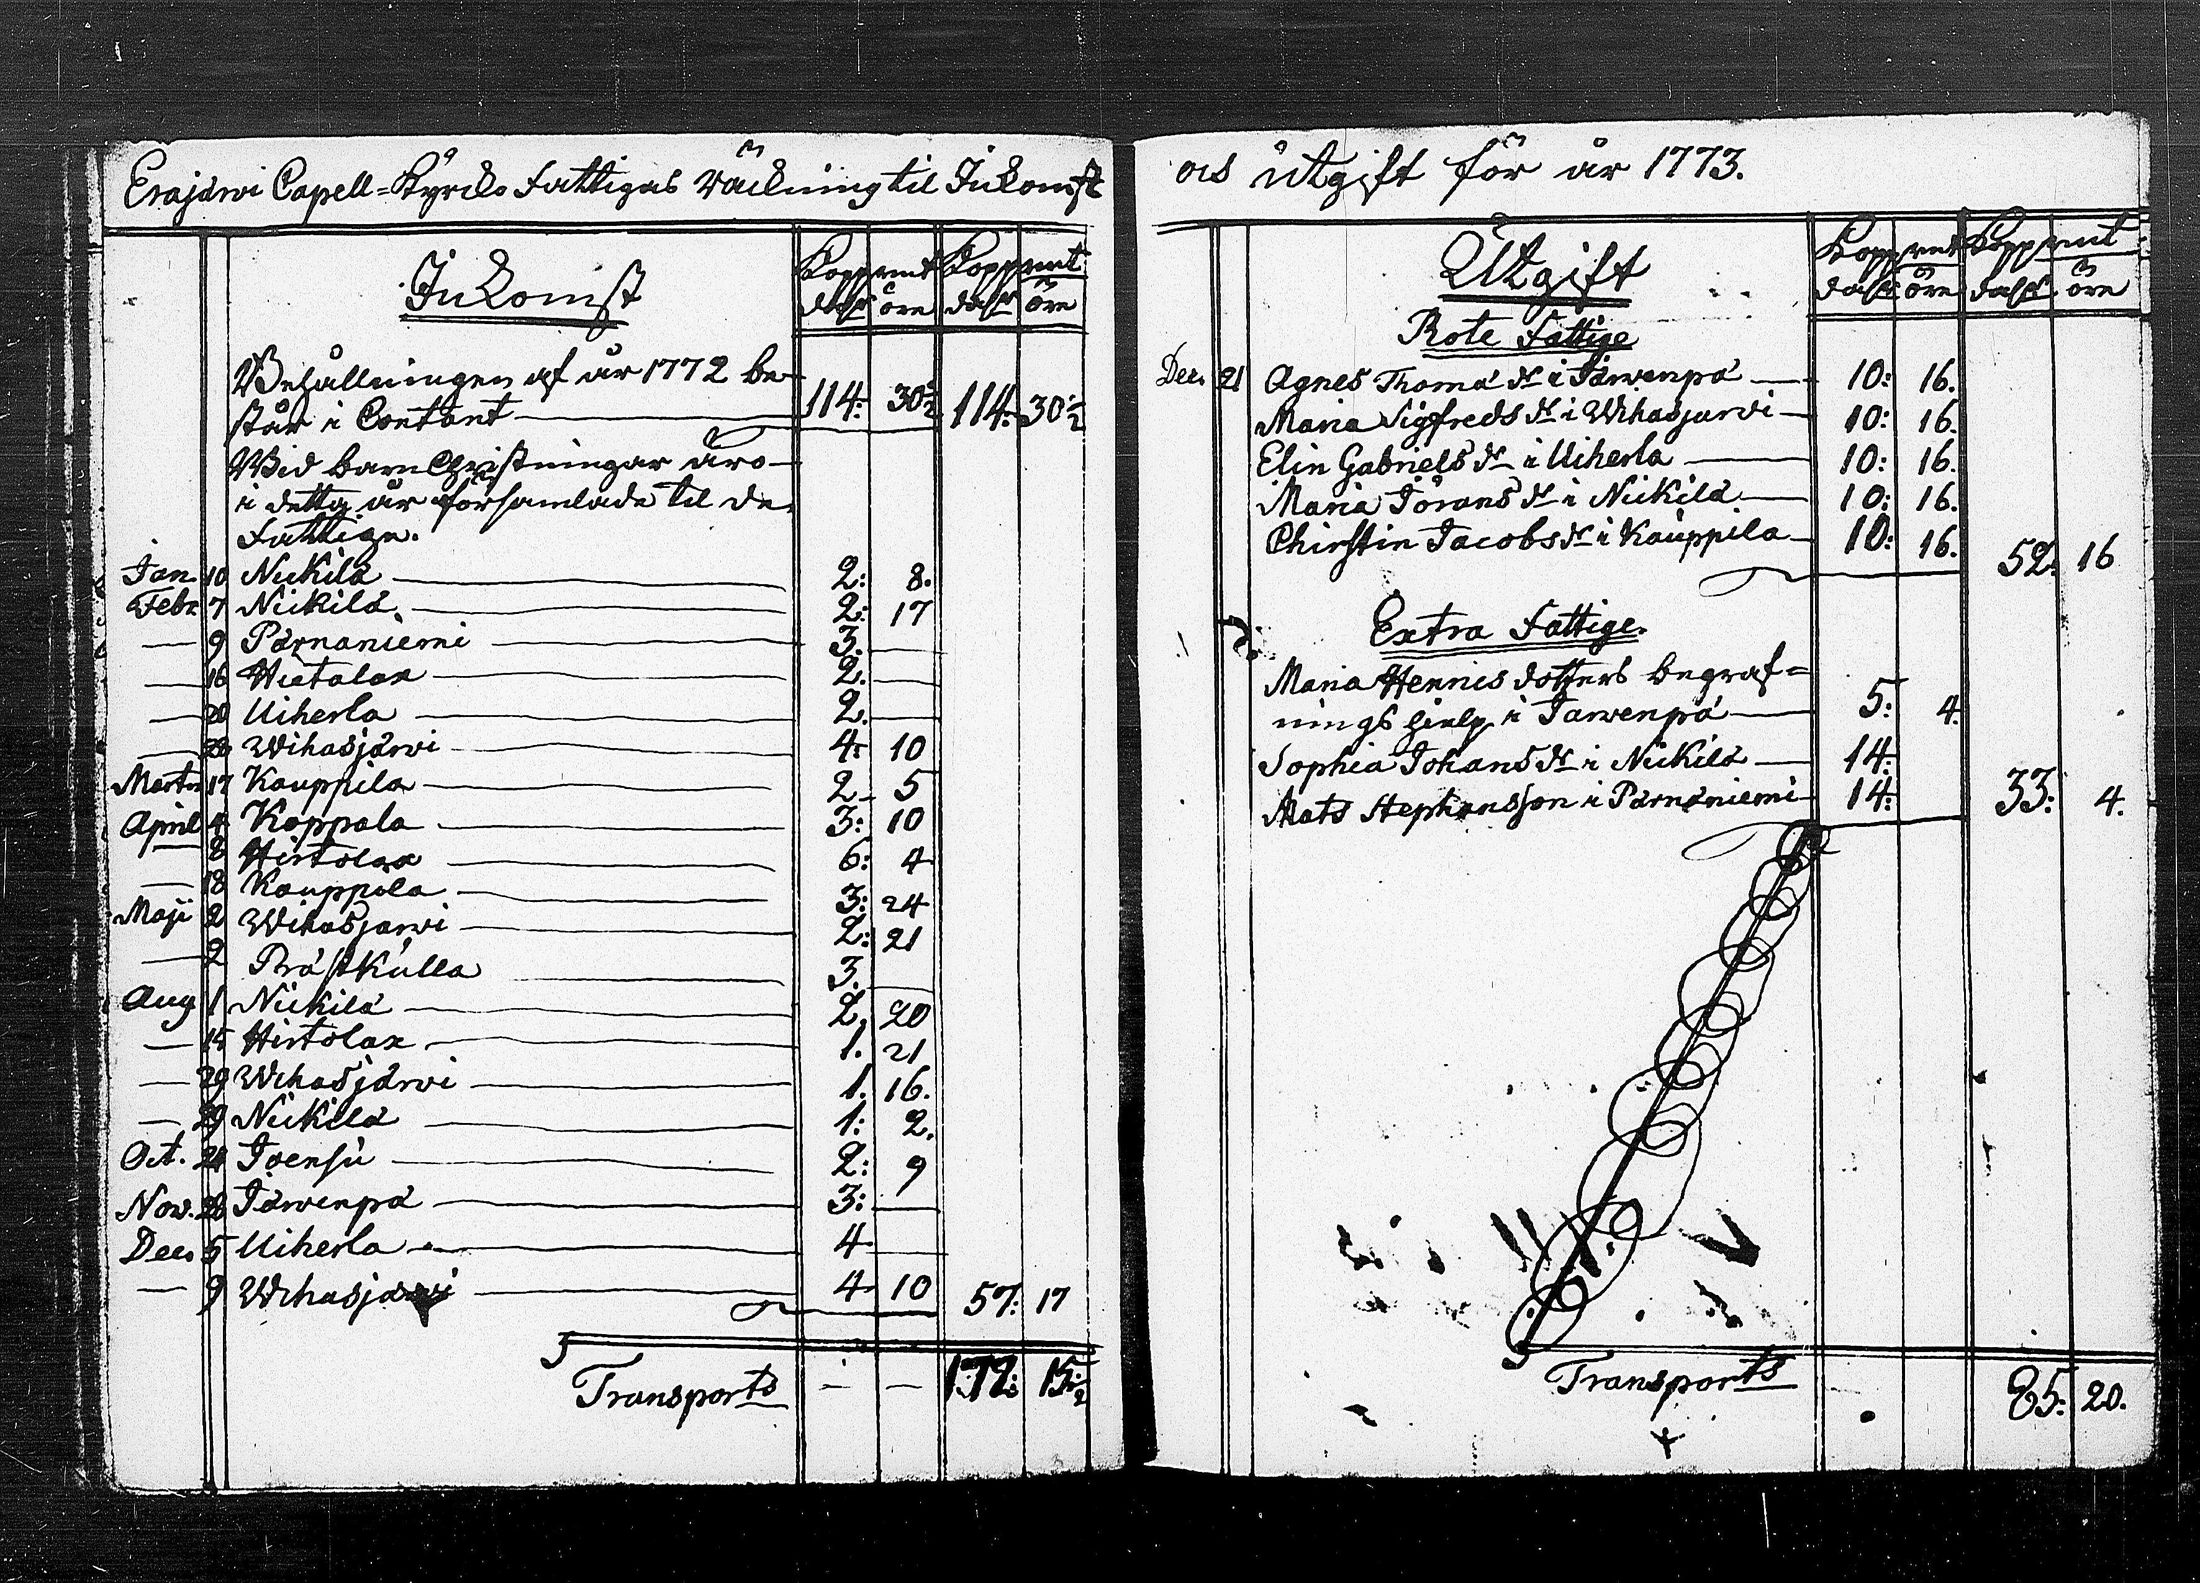 Erajärwi Capell=Kyrcko Fattigas räckning til Inkomst
Inkomst
Koppmt Koppmt
dalr öre dalr öre
Behållningen af år 1772 be-
står i Contant 114: 30½ 114: 30½
Wid barn Christningar äro
i detta år församlade til de
Fattige.
Jan. 10 Niikilä 2: 8.
Febr 7 Niikilä 2: 17
— 9 Pärnäniemi 3. —
— 16 Hietalax 2. —
— 20 Uiherla 2. —
— 28 Wihasjärwi 4: 10
Marti 17 Kauppila 2 5
April 4 Koppala 3: 10
— 8 Hirtolax 6: 4
— 18 Kauppila 3: 24
Maji 2 Wihasjärwi 2: 21
— 2 Prästkulla 3. —
Aug. 1 Niikilä 2. 20
— 15 Hirtolax 1. 21
— 29 Wihasjärwi 1. 16.
— 29 Niikilä 1: 2.
Oct. 24 Joensu 2: 9
Nov. 28 Järwenpä 3: —
Decr 5 Uiherla 4 —
— 9 Wihasjärwi 4 10 57: 17
Transports — — 172: 15½
och Utgift för år 1773.
Utgift
Koppmt Koppmt
dalr öre dalr öre
Rote Fattige
Decr 21 Agnes Thomä dr i Järwenpä 10: 16.
Maria Sigfreds dr i Wihasjärwi 10: 16.
Elin Gabriels dr i Uiherla 10: 16.
Maria Jörans dr i Niikilä 10: 16.
Chirstin Jacobs dr i Kauppila 10: 16. 52: 16
Extra Fattige.
Maria Hennes dotters begraf=
nings hielp i Järwenpä 5: 4.
Sophia Johans dr i Niikilä 14:
Mats Stephansson i Pärnäniemi 14: 33: 4.
Transports 85: 20.